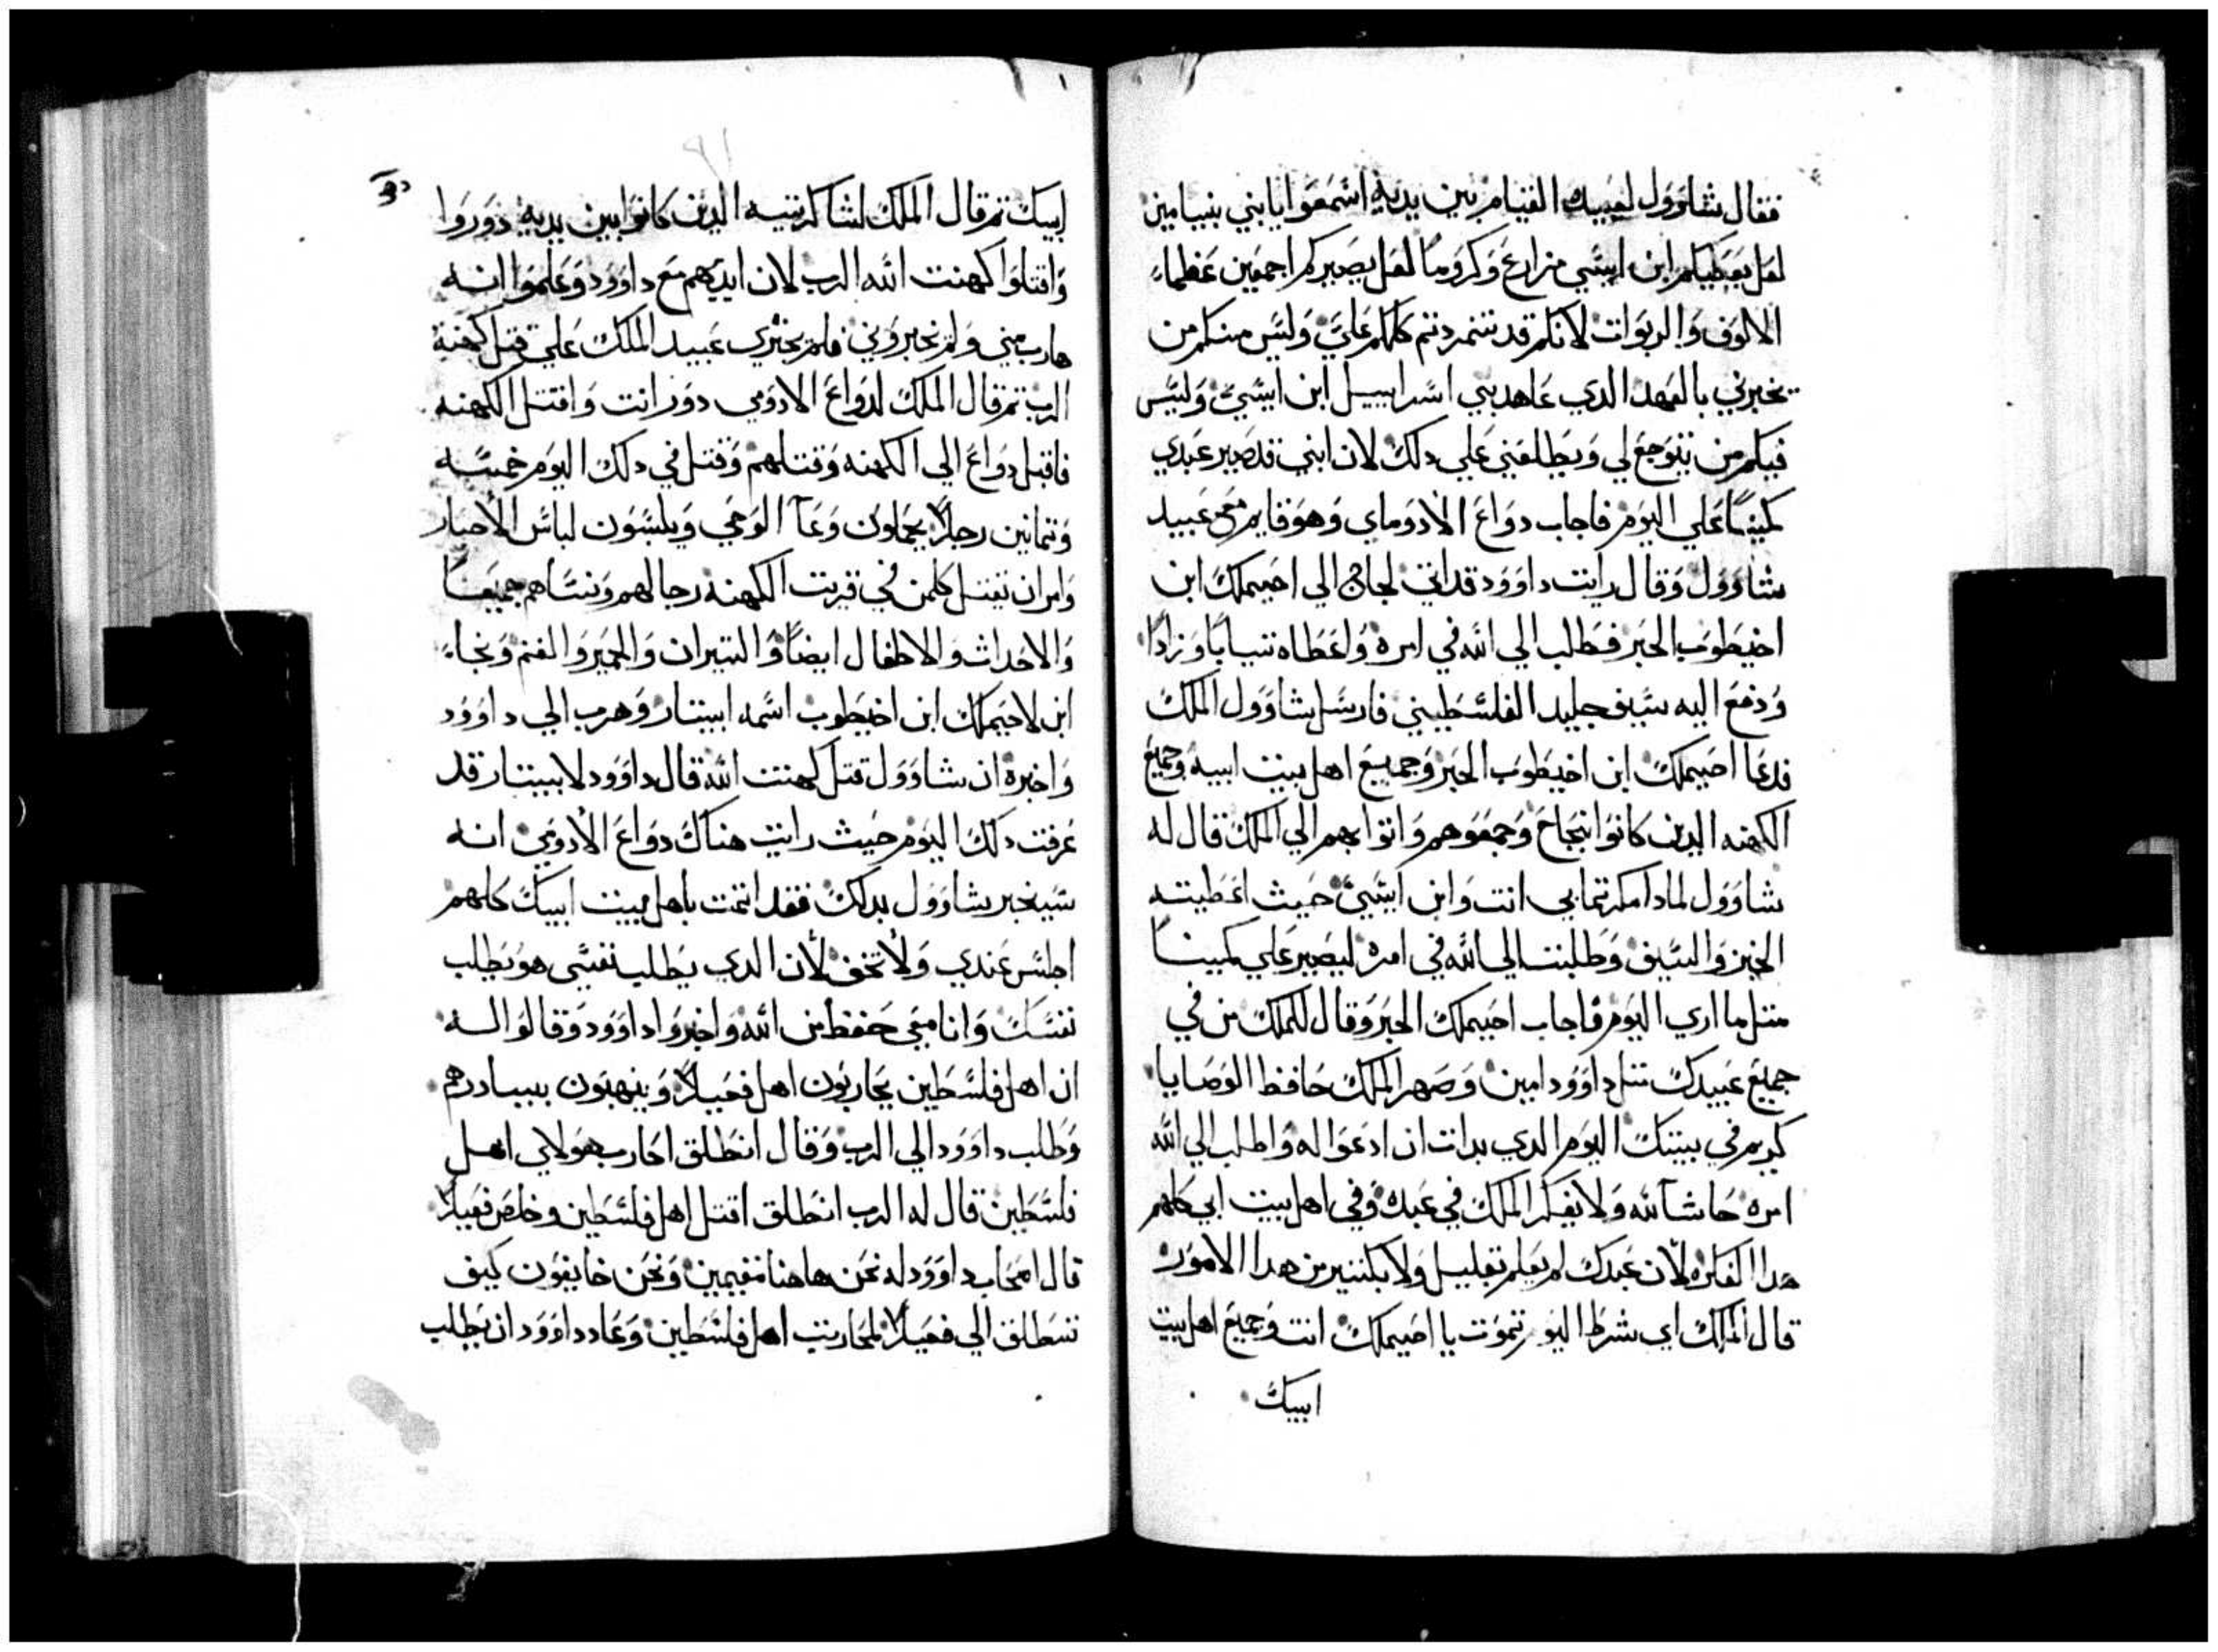 فقال شاوول لعبيده القيام بين يديه اسمعوا يا بني بنيامين
لعل يعطيكم ابن ايسي مزارع وكروما لعل يصيركم اجمعين عظماء
الالوف والربوات لانكم قد تمردتم كلكم علي وليس منكم من
يخبرني بالعهد الدي عاهد بني اسراييل ابن ايسي وليس
فيكم من يتوجع لي ويطلعني علي دلك لان ابني قد صير عبدي
كمينا علي اليوم فاجاب دواع الادوماي وهو قايم مع عبيد
شاوول وقال رايت داوود قد اتي لجاج الي احيملك ابن
اخيطوب الحبر فطلب الي الله في امره واعطاه تيابا وزادا
ودفع اليه سيف جليد الفلسطيني فارسل شاوول الملك
فدعا احيملك ابن اخيطوب الحبر وجميع اهل بيت ابيه وجميع
الكهنه الدين كانوا بنجاح وجمعوهم واتوا بهم الي الملك قال له
شاوول لمادا مكرتما بي انت وابن ايسي حيث اعطيته
الخبز والسيف وطلبت الي الله في امره ليصير علي كمينا
متل ما اري اليوم فاجاب احيملك الحبر وقال للملك من في
جميع عبيدك متل داوود امين وصهر الملك حافظ الوصايا
كريم في بيتك اليوم الدي بدات ان ادعوا له واطلب الي الله
امره حاشا لله ولا يفكر الملك في عبده وفي اهل بيت ابي كلهم
هدا الفكره لان عبدك لم يعلم بقليل ولا بكتير من هدا الامور
قال الملك اي شرط اليوم تموت يا احيملك انت وجميع اهل بيت
ابيك
ابيك تم قال الملك لشاكريته الدين كانوا بين يديه دوروا
واقتلوا كهنت الله الرب لان ايديهم مع داوود وعلموا انه
هارب مني ولم يخبروني فلم يجتري عبيد الملك علي قتل كهنه
الرب تم قال الملك لدواع الادومي دور انت واقتل الكهنه
فاقبل دواع الي الكهنه وقتلهم وقتل في دلك اليوم خمسه
وتمانين رجلا يحملون وعآ الوحي ويلبسون لباس الاحبار
وامر ان يقتل كلمن في قريت الكهنه رجالهم ونساهم جميعا
والاحداث والاطفال ايضا والتيران والحمير والغنم ونجاء
ابن لاحيملك ابن اخيطوب اسمه ابيتار وهرب الي داوود
واخبره ان شاوول قتل كهنت الله قال داوود لابيتار قد
عرفت دلك اليوم حيث رايت هناك دواع الادومي انه
سيخبر شاوول بدلك فقد اتمت باهل بيت ابيك كلهم
اجلس عندي ولا تخف لان الدي يطلب نفسي هو يطلب
نفسك وانا معي حفظ من الله واخبروا داوود وقالوا له
ان اهل فلسطين يحاربون اهل قعيلا وينهبون بيادرهم
وطلب داوود الي الرب وقال انطلق احارب هولاي اهل
فلسطين قال له الرب انطلق اقتل اهل فلسطين وخلص قعيلا
قال اصحاب داوود له نحن هاهنا مقيمين ونحن خايفون كيف
ننطلق الي قعيلا لمحاربت اهل فلسطين وعاد داوود ان يطلب